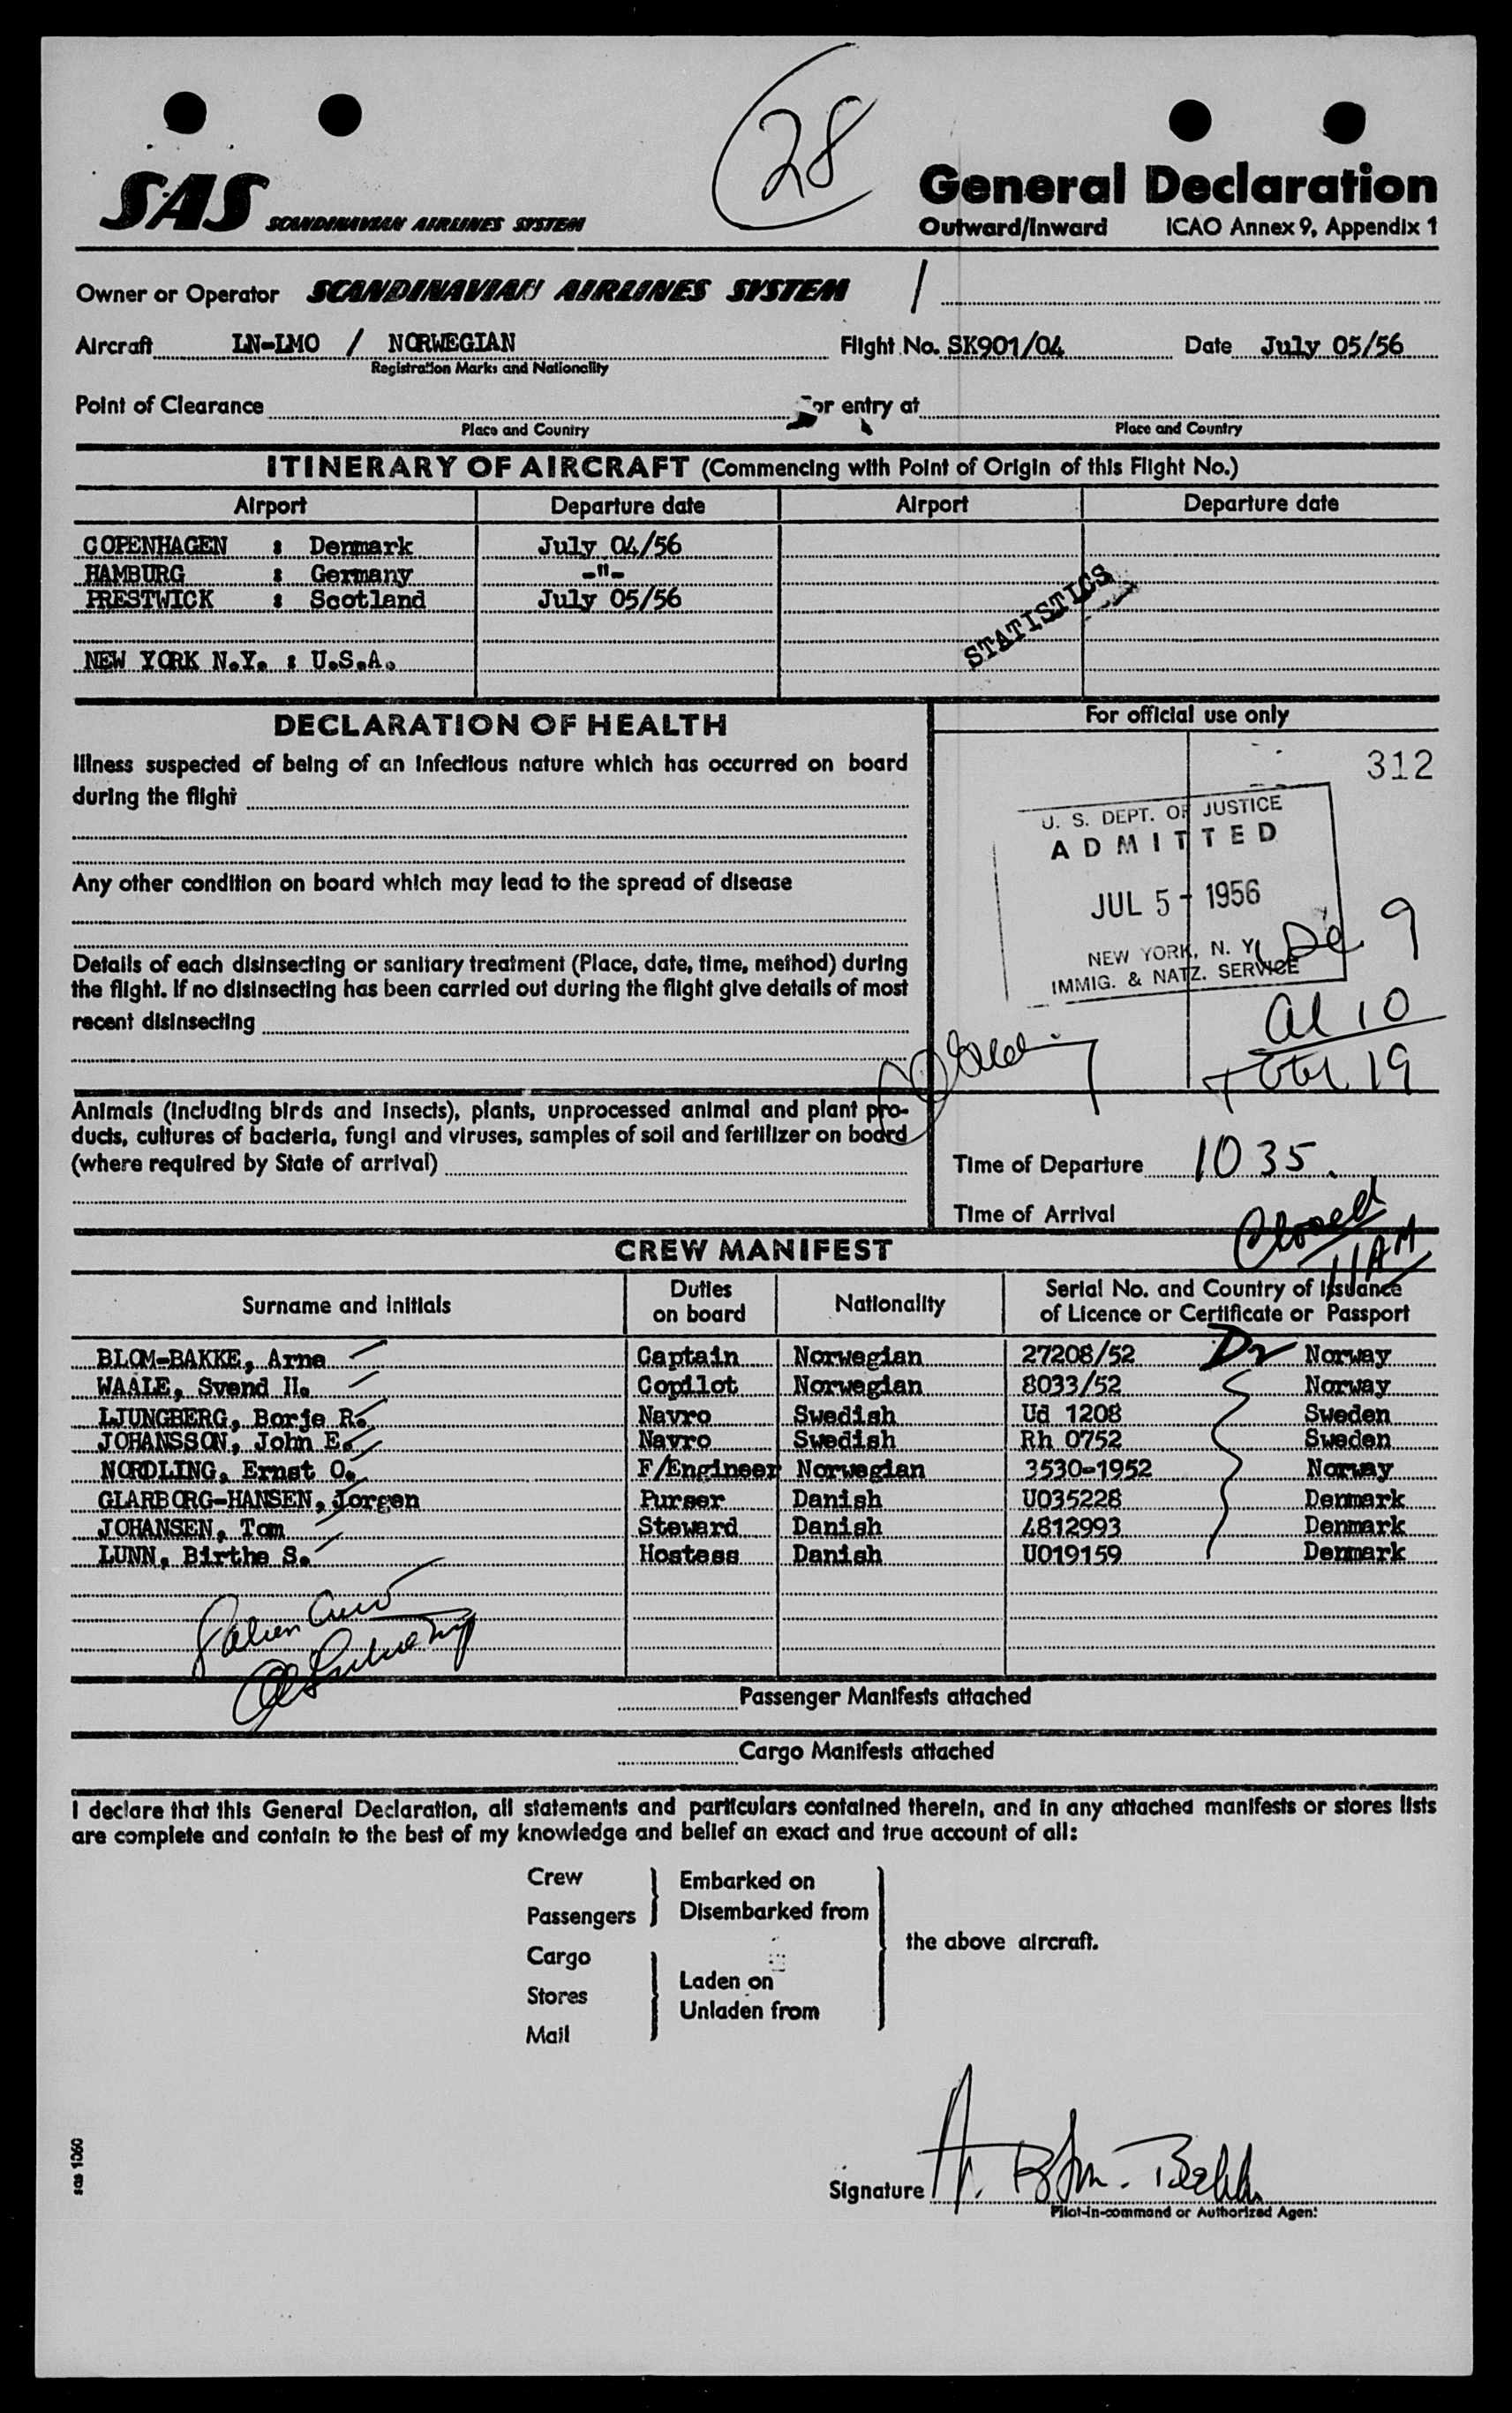 28
SAS SCANDINAVIAN AIRLINES SYSTEM
General Declaration
Outward/Inward ICAO Annex 9, Appendix 1
Owner or Operator SCANDINAVIAN AIRLINES SYSTEM /
Aircraft LN-LMO / NORWEGIAN Flight No. SK901/04 Date July 05/56
Registration Marks and Nationality
Point of Clearance For entry at
Place and Country Place and Country
ITINERARY OF AIRCRAFT (Commencing with Point of Origin of this Flight No.)
Airport Departure date Airport Departure date
COPENHAGEN : Denmark July 04/56
HAMBURG : Germany -"-
PRESTWICK : Scotland July 05/56
STATISTICS
NEW YORK N.Y. : U.S.A.
DECLARATION OF HEALTH
Illness suspected of being of an infectious nature which has occurred on board
during the flight
Any other condition on board which may lead to the spread of disease
Details of each disinsecting or sanitary treatment (Place, date, time, method) during
the flight. If no disinsecting has been carried out during the flight give details of most
recent disinsecting
Animals (including birds and insects), plants, unprocessed animal and plant pro-
ducts, cultures of bacteria, fungi and viruses, samples of soil and fertilizer on board
(where required by State of arrival)
For official use only
312
U. S. DEPT. OF JUSTICE
ADMITTED
JUL 5 - 1956
NEW YORK, N. Y.
IMMIG. & NATZ. SERVICE
9
al 10
total 19
Time of Departure 1035.
Time of Arrival
Closed
11 AM
CREW MANIFEST
Surname and initials Duties on board Nationality Serial No. and Country of Issuance of Licence or Certificate or Passport
BLOM-BAKKE, Arne Captain Norwegian 27208/52 Norway
WAALE, Svend H. Copilot Norwegian 8033/52 Norway
LJUNGBERG, Borje R. Navro Swedish Ud 1208 Sweden
JOHANSSON, John E. Navro Swedish Rh 0752 Sweden
NORDLING, Ernst O. F/Engineer Norwegian 3530-1952 Norway
GLARBORG-HANSEN, Jorgen Purser Danish U035228 Denmark
JOHANSEN, Tom Steward Danish 4812993 Denmark
LUNN, Birthe S. Hostess Danish U019159 Denmark
Passenger Manifests attached
Cargo Manifests attached
I declare that this General Declaration, all statements and particulars contained therein, and in any attached manifests or stores lists
are complete and contain to the best of my knowledge and belief an exact and true account of all:
Crew
Passengers
Embarked on
Disembarked from
Cargo
Stores
Mail
Laden on
Unladen from
the above aircraft.
sas 1060
Signature A. Blom-Bakke
Pilot-in-command or Authorized Agent